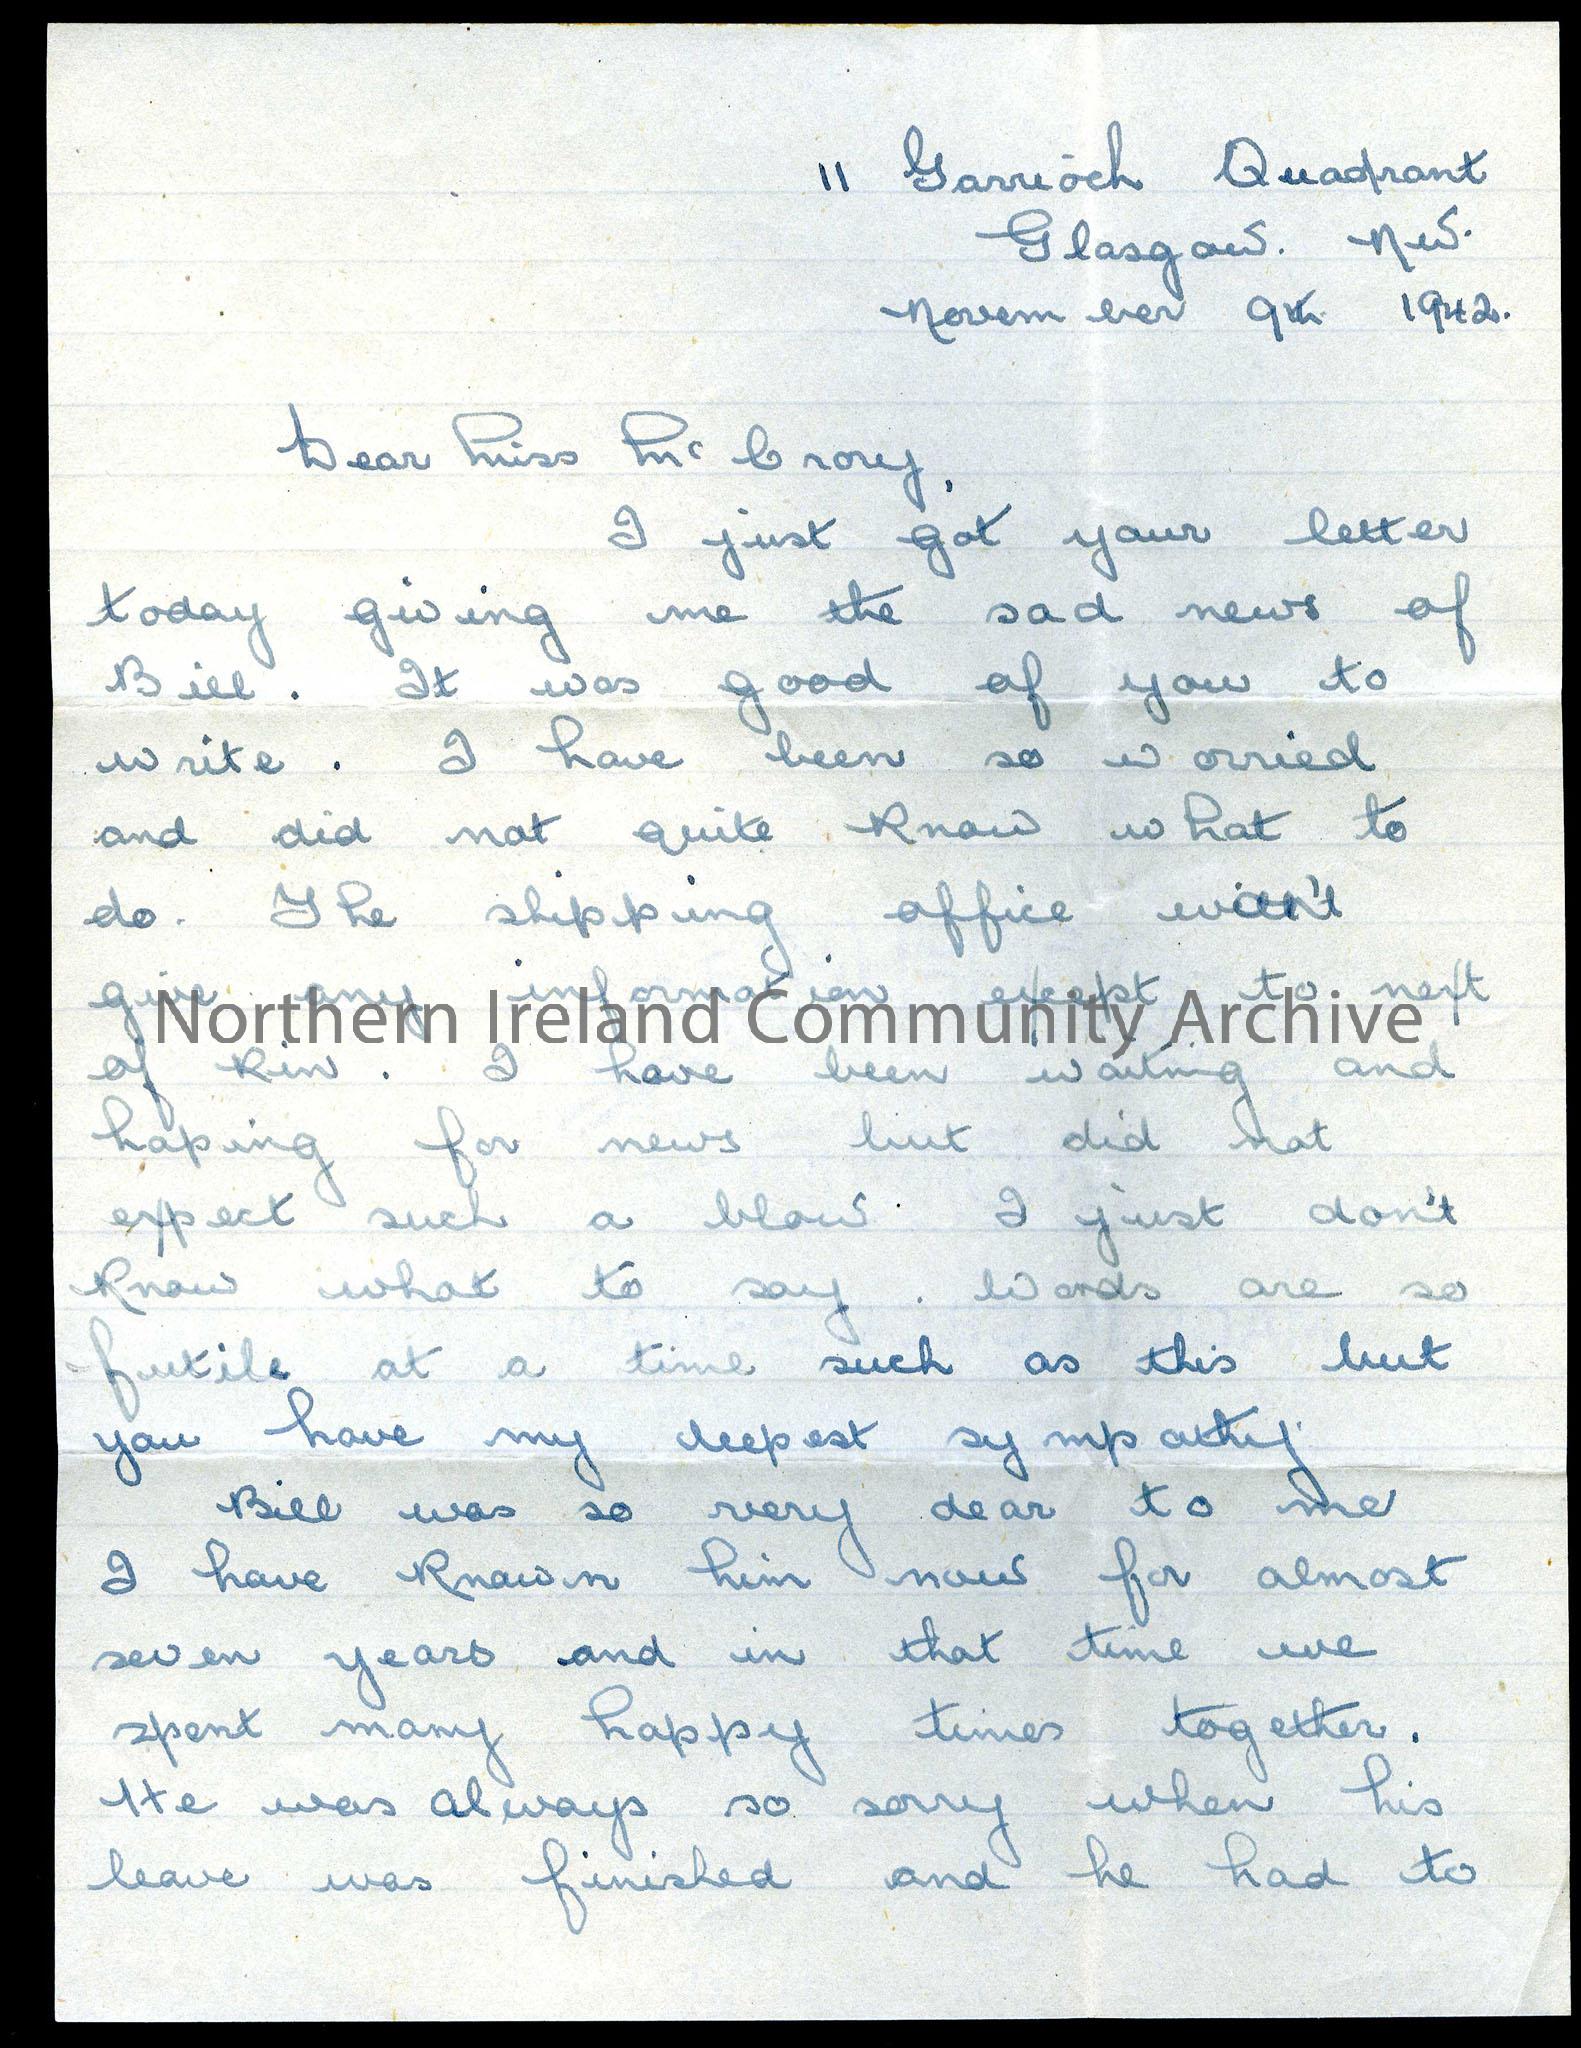 11 Garrioch Quadrant
Glasgow. N.W.
November 9th 1942.
Dear Miss McCrory,
I just got your letter
today giving me the sad news of
Bill. It was good of you to
write. I have been so worried
and did not quite know what to
do. The shipping office won't
give any information except to next
Northern Ireland Community Archive
of kin. I have been waiting and
hoping for news but did not
expect such a blow. I just don't
know what to say. Words are so
futile at a time such as this but
you have my deepest sympathy.
Bill was so very dear to me
I have known him now for almost
seven years and in that time we
spent many happy times together.
He was always so sorry when his
leave was finished and he had to